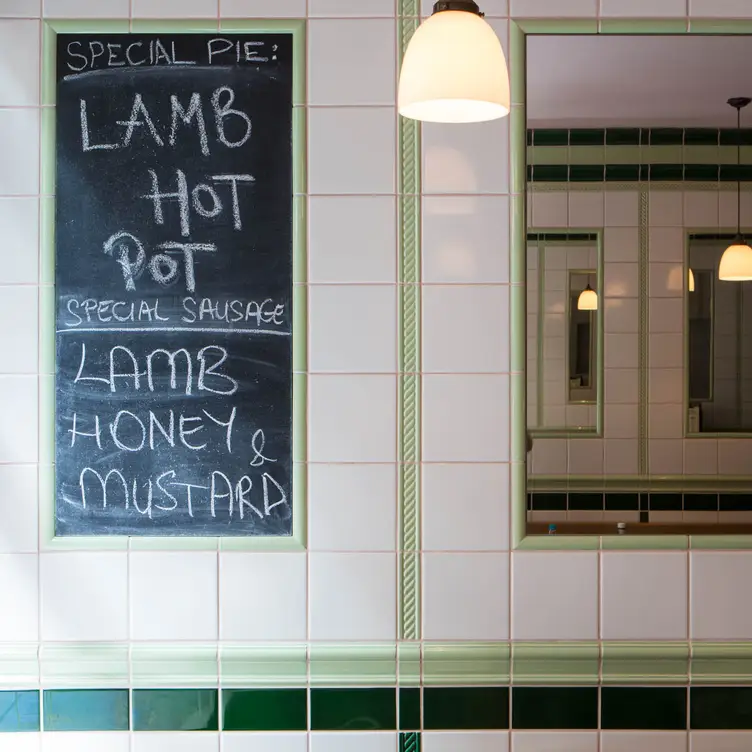 SPECIAL PIE:
LAMB
HOT
POT
SPECIAL SAUSAGE
LAMB
HONEY &
MUSTARD